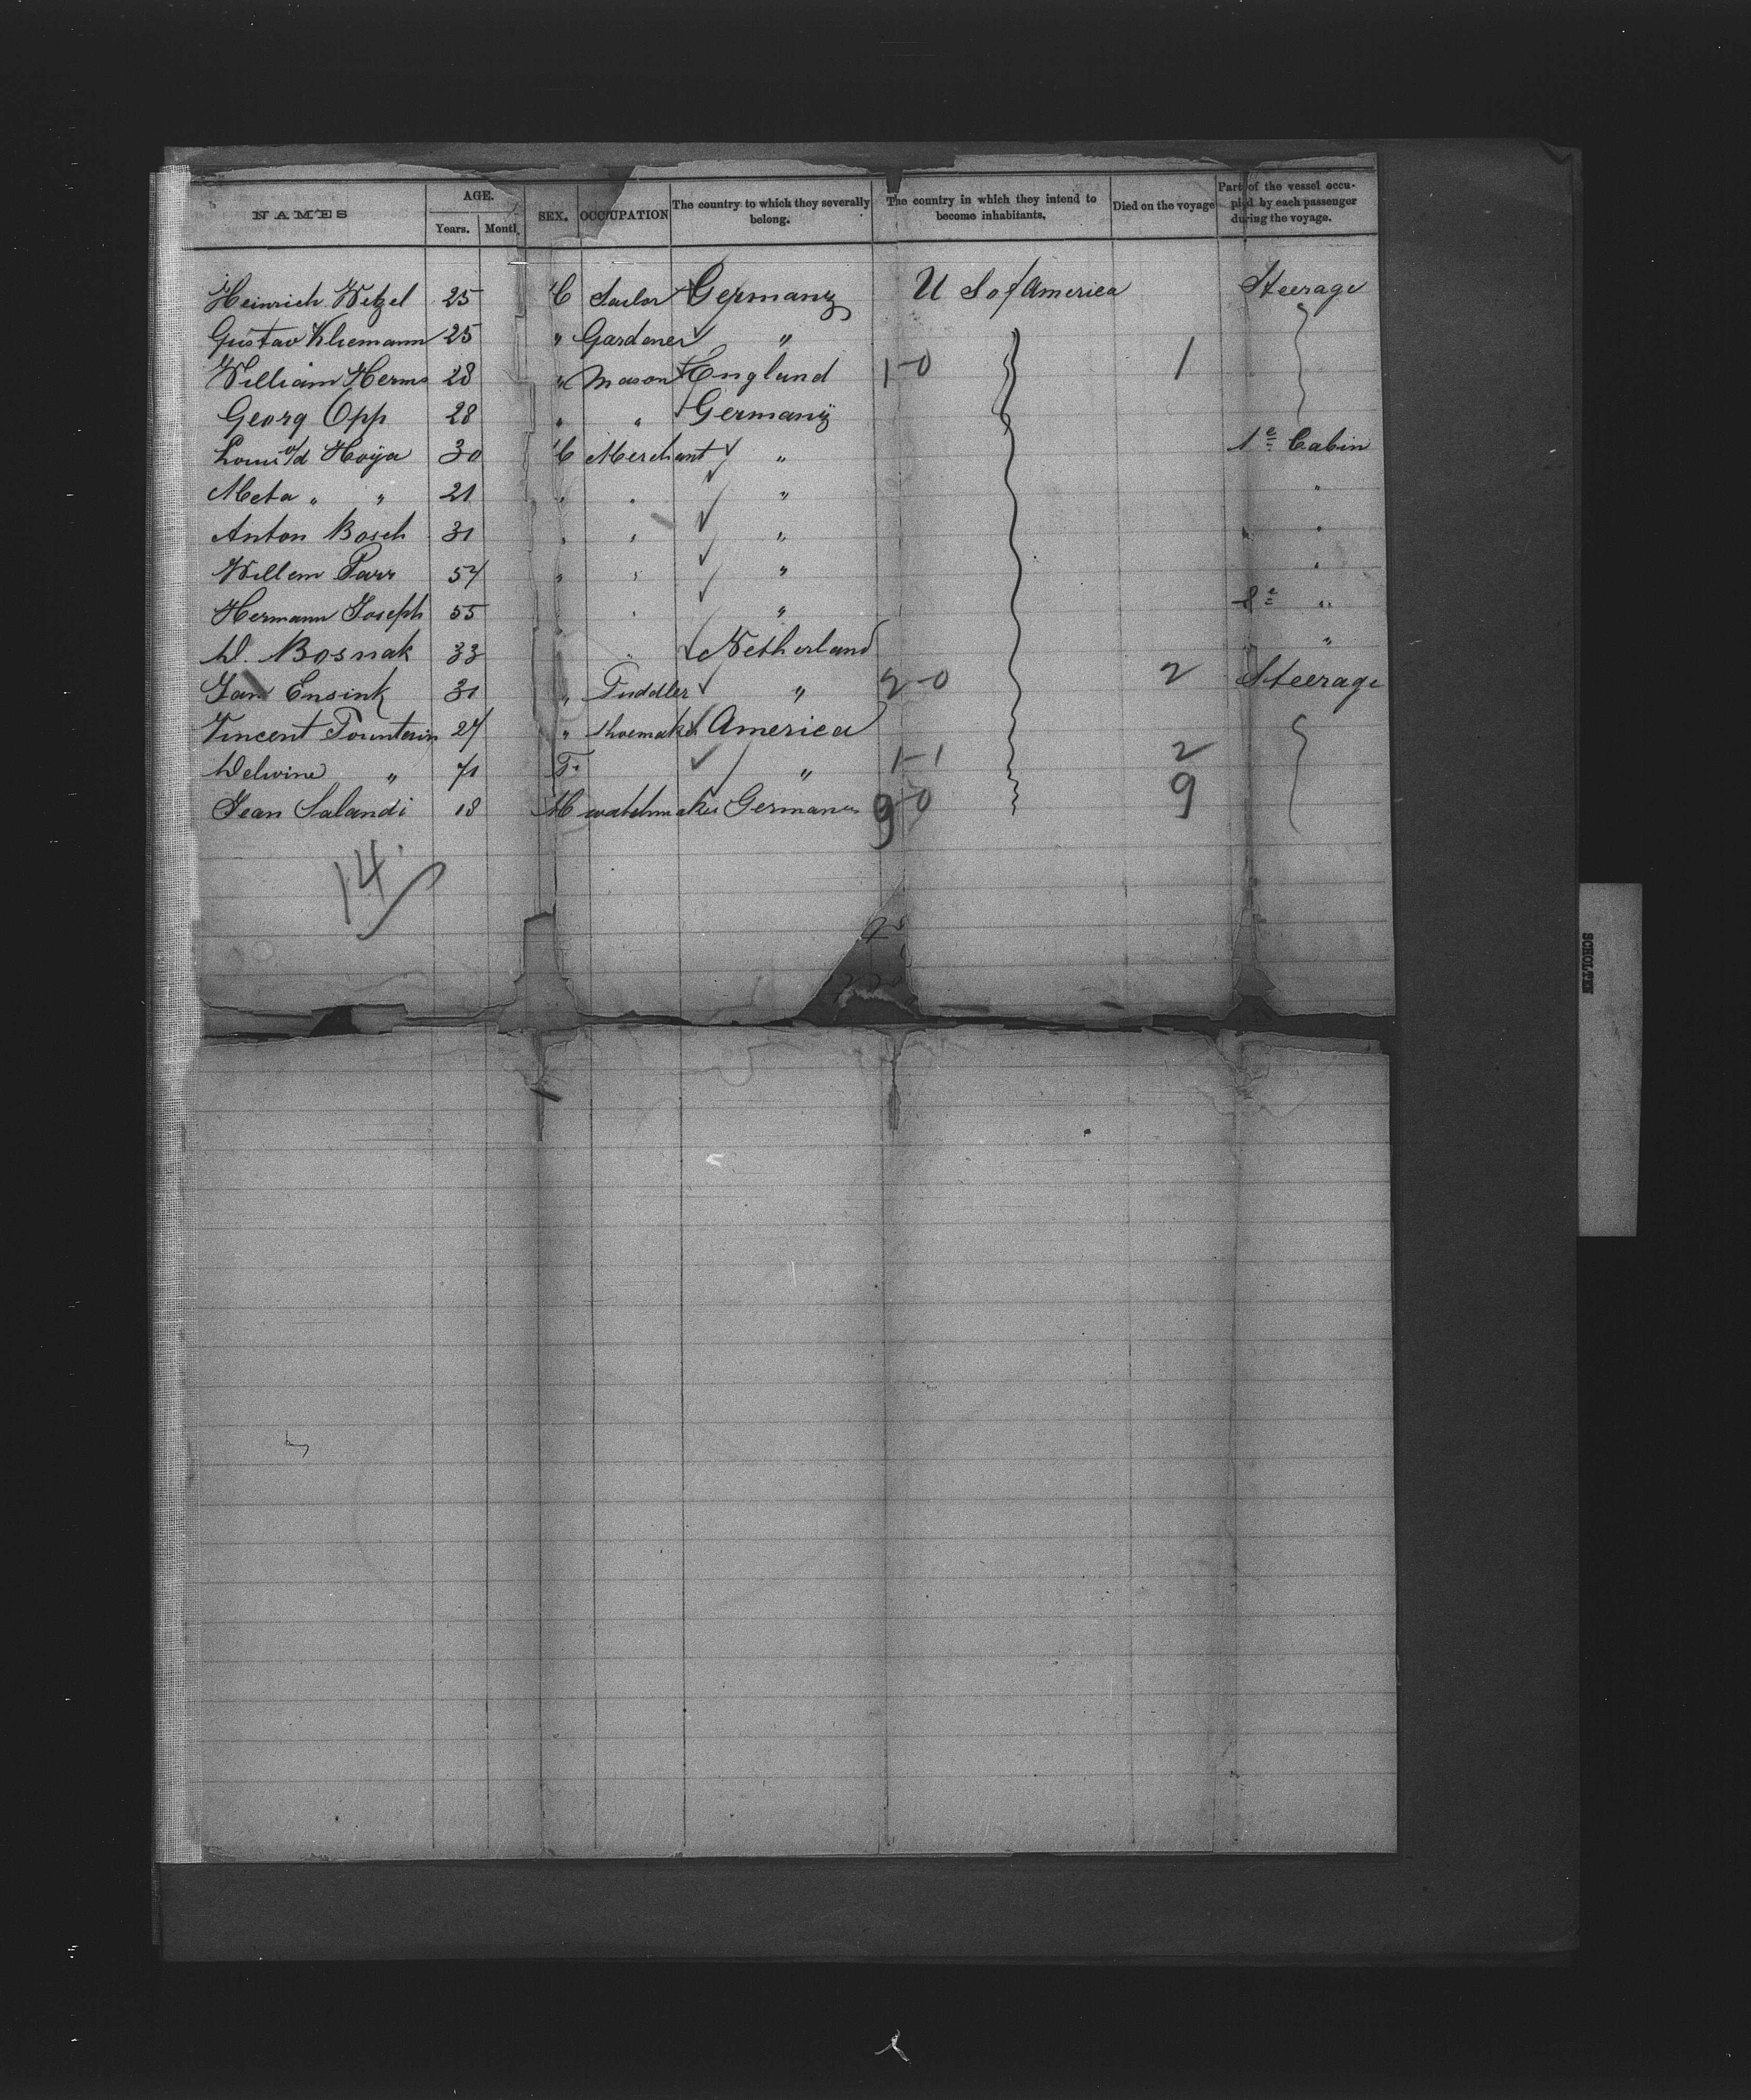 NAMES AGE. Years. Month. SEX. OCCUPATION The country to which they severally belong. The country in which they intend to become inhabitants. Died on the voyage Part of the vessel occupied by each passenger during the voyage.
Heinrich Wetzel 25 Germany U S of America Steerage
Gustav Kliemann 25 " Gardener "
William Herms 28 " Mason England 1-0 1
Georg Opp 28 " " Germany
Louis v/d Hoya 30 Merchant " 1e Cabin
Meta " " 21 " " " "
Anton Bosch 31 " " " "
Willem 54 " " " "
Hermann Joseph 55 " " " 2e "
D. Bosnak 33 " Netherland "
Jan Ensink 31 " Puddler " 2-0 2 Steerage
Vincent 24 " Shoemaker America
" " 1-1 2
Jean Salandi 18 M watchmaker Germany 9-0 9
14
SCHOLTEN